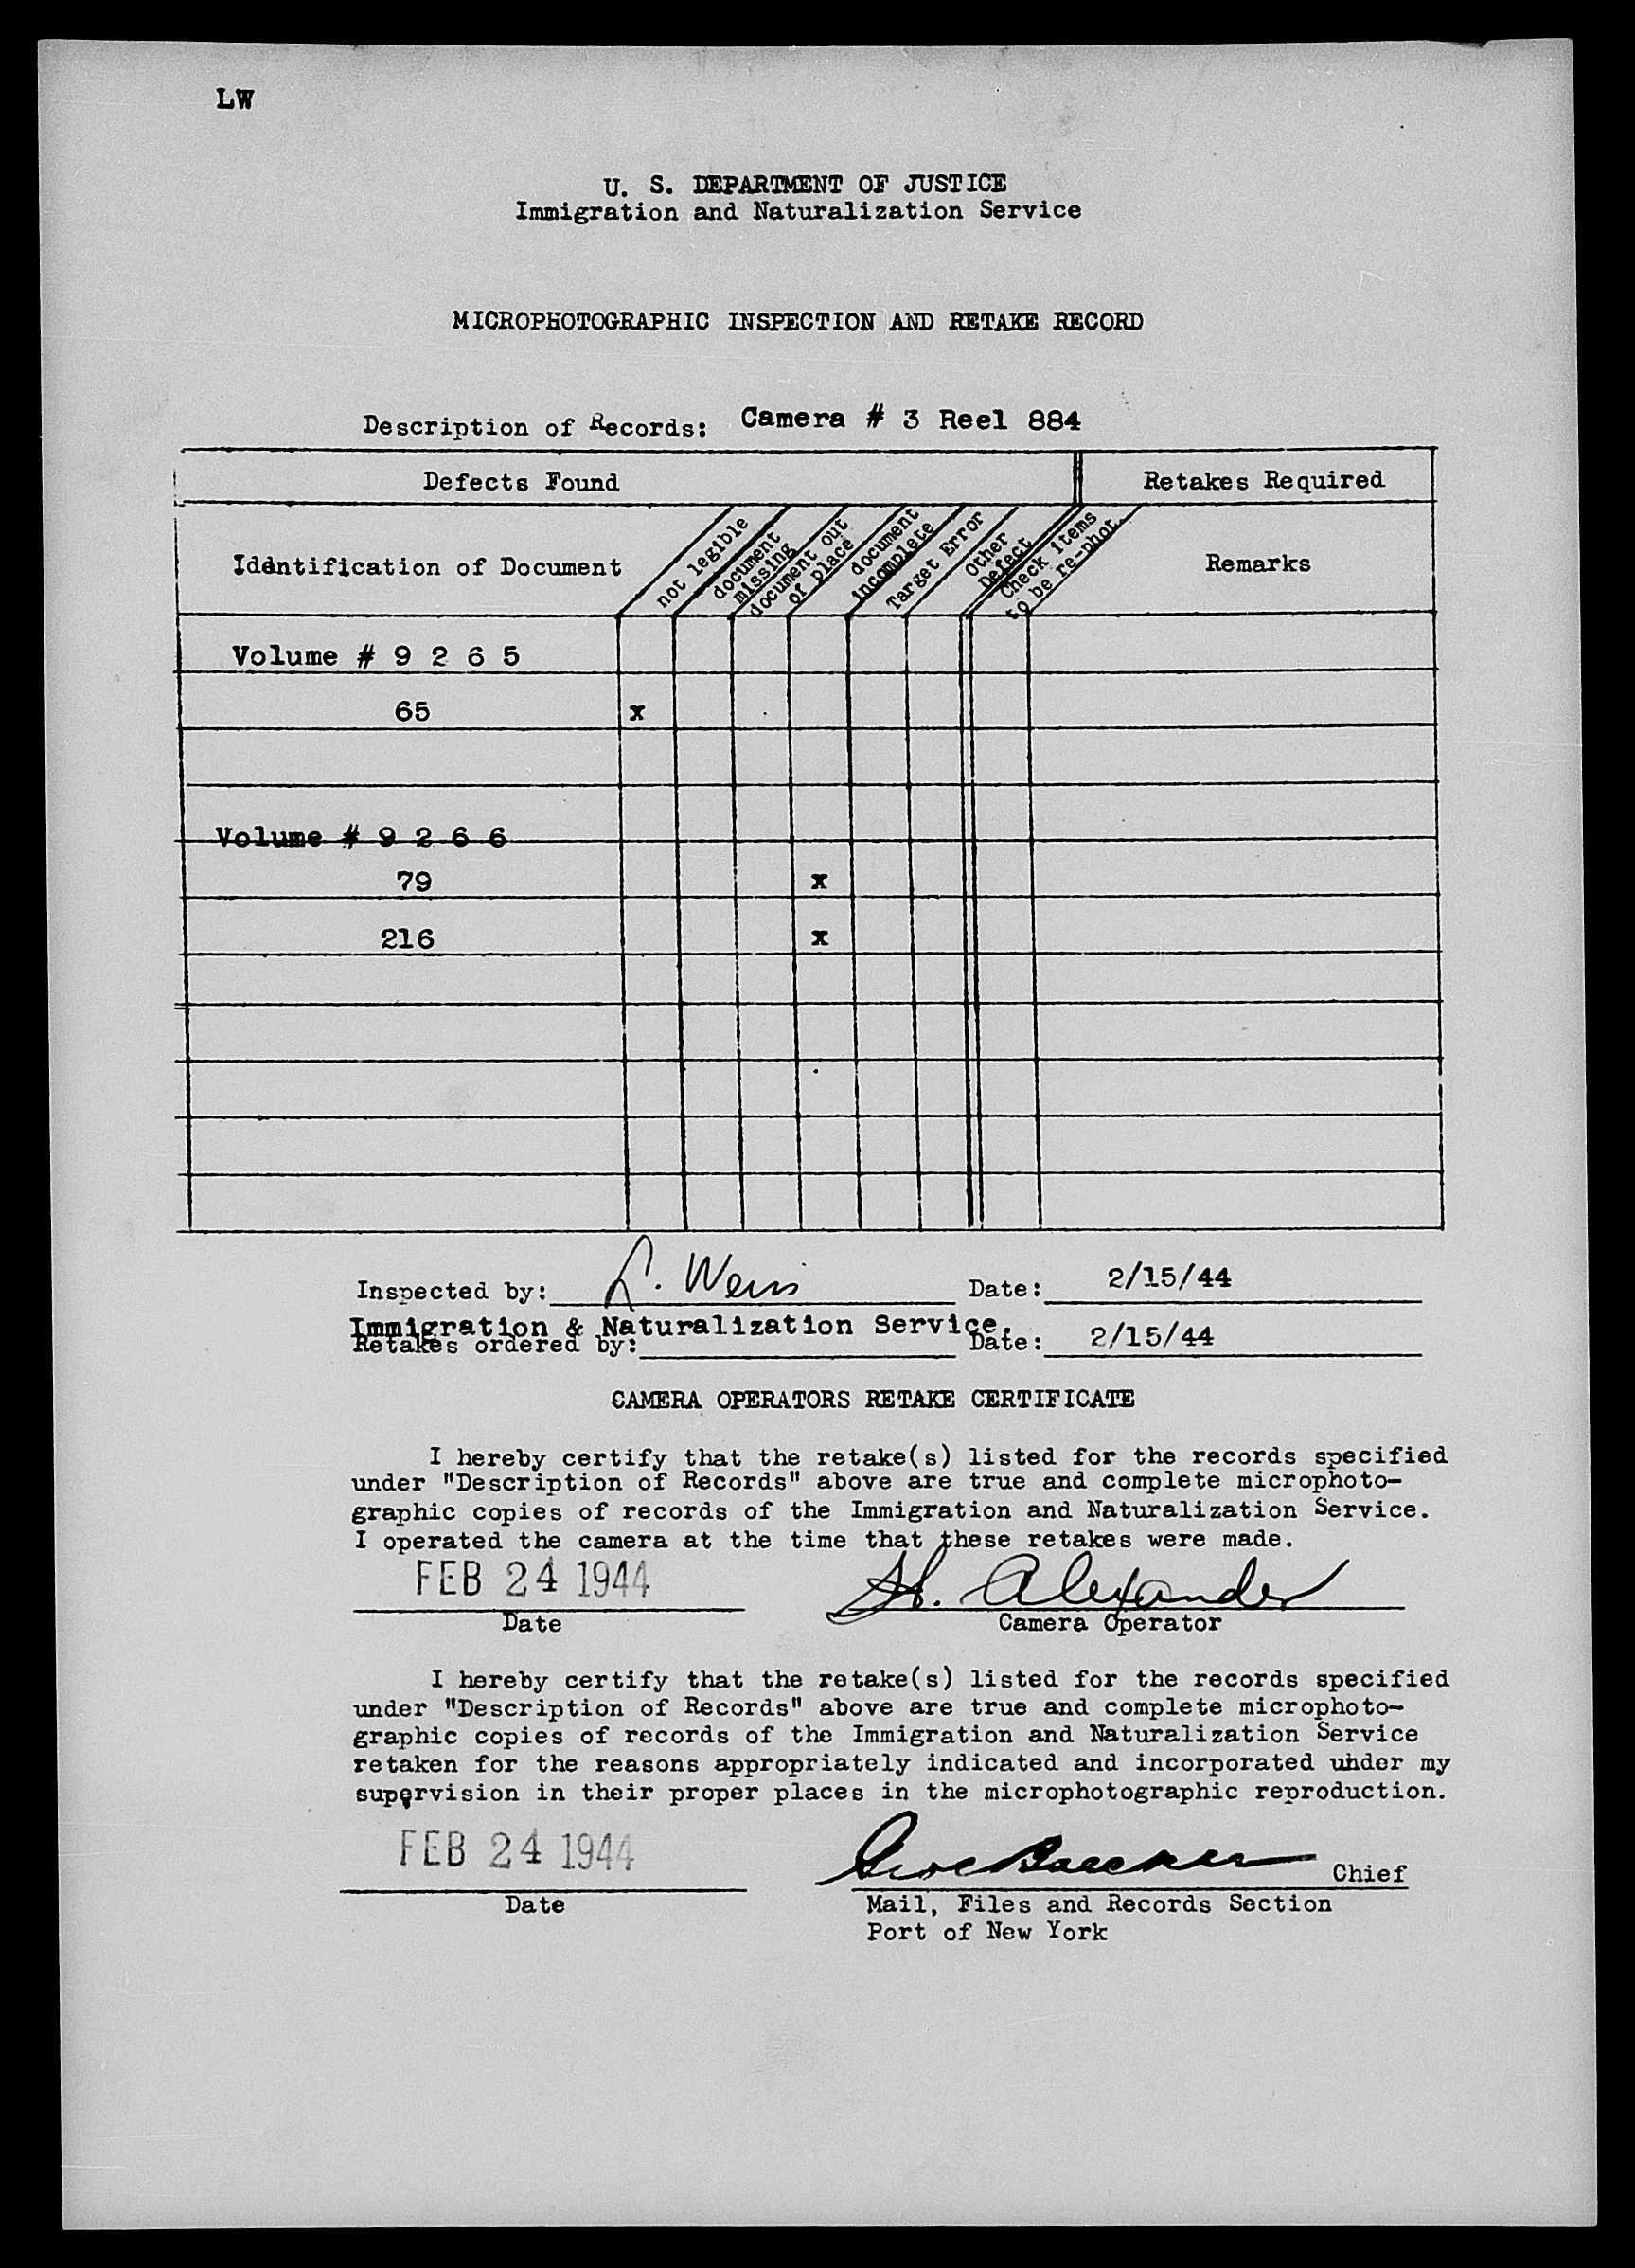 LW
U. S. DEPARTMENT OF JUSTICE
Immigration and Naturalization Service
MICROPHOTOGRAPHIC INSPECTION AND RETAKE RECORD
Description of Records: Camera # 3 Reel 884
Defects Found Retakes Required
Identification of Document
not legible
document
missing
document out
of place
document
incomplete
Target Error
Other
Defect
Check items
to be re-phot.
Remarks
Volume # 9 2 6 5
65 x
Volume # 9 2 6 6
79 x
216 x
Inspected by: L. Weiss Date: 2/15/44
Immigration & Naturalization Service.
Retakes ordered by: Date: 2/15/44
CAMERA OPERATORS RETAKE CERTIFICATE
I hereby certify that the retake(s) listed for the records specified
under "Description of Records" above are true and complete microphoto-
graphic copies of records of the Immigration and Naturalization Service.
I operated the camera at the time that these retakes were made.
FEB 24 1944 H. Alexander
Date Camera Operator
I hereby certify that the retake(s) listed for the records specified
under "Description of Records" above are true and complete microphoto-
graphic copies of records of the Immigration and Naturalization Service
retaken for the reasons appropriately indicated and incorporated under my
supervision in their proper places in the microphotographic reproduction.
FEB 24 1944 Chief
Date Mail, Files and Records Section
Port of New York